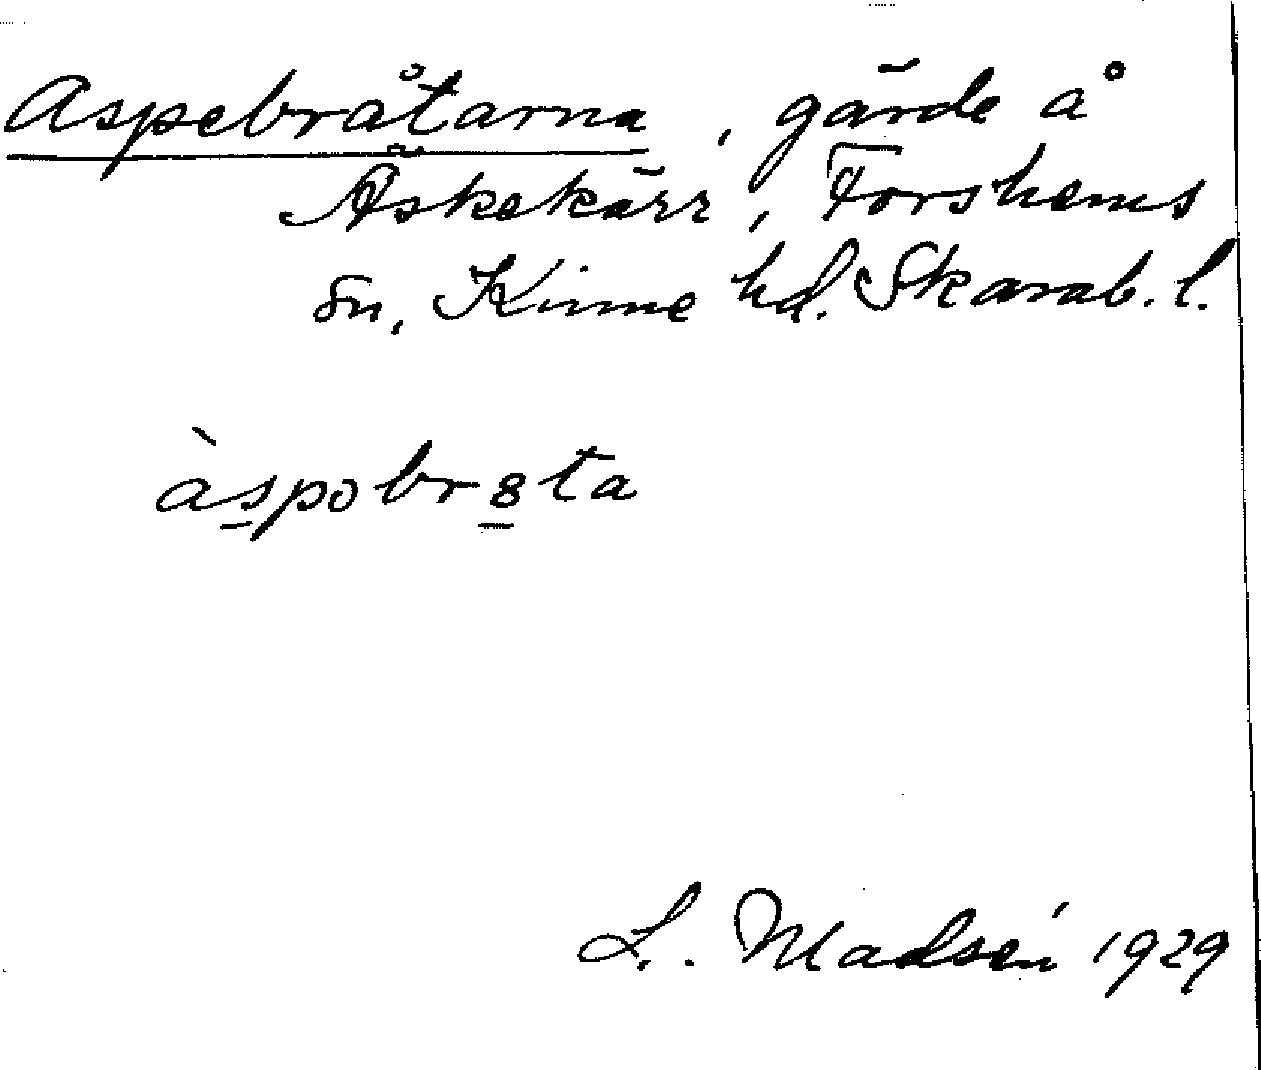 Aspebråtarna, gärde å
Äskekärr, Forshems
sn, Kinne hd. Skarab. l.
àspobr8ta
L. Madsén 1929